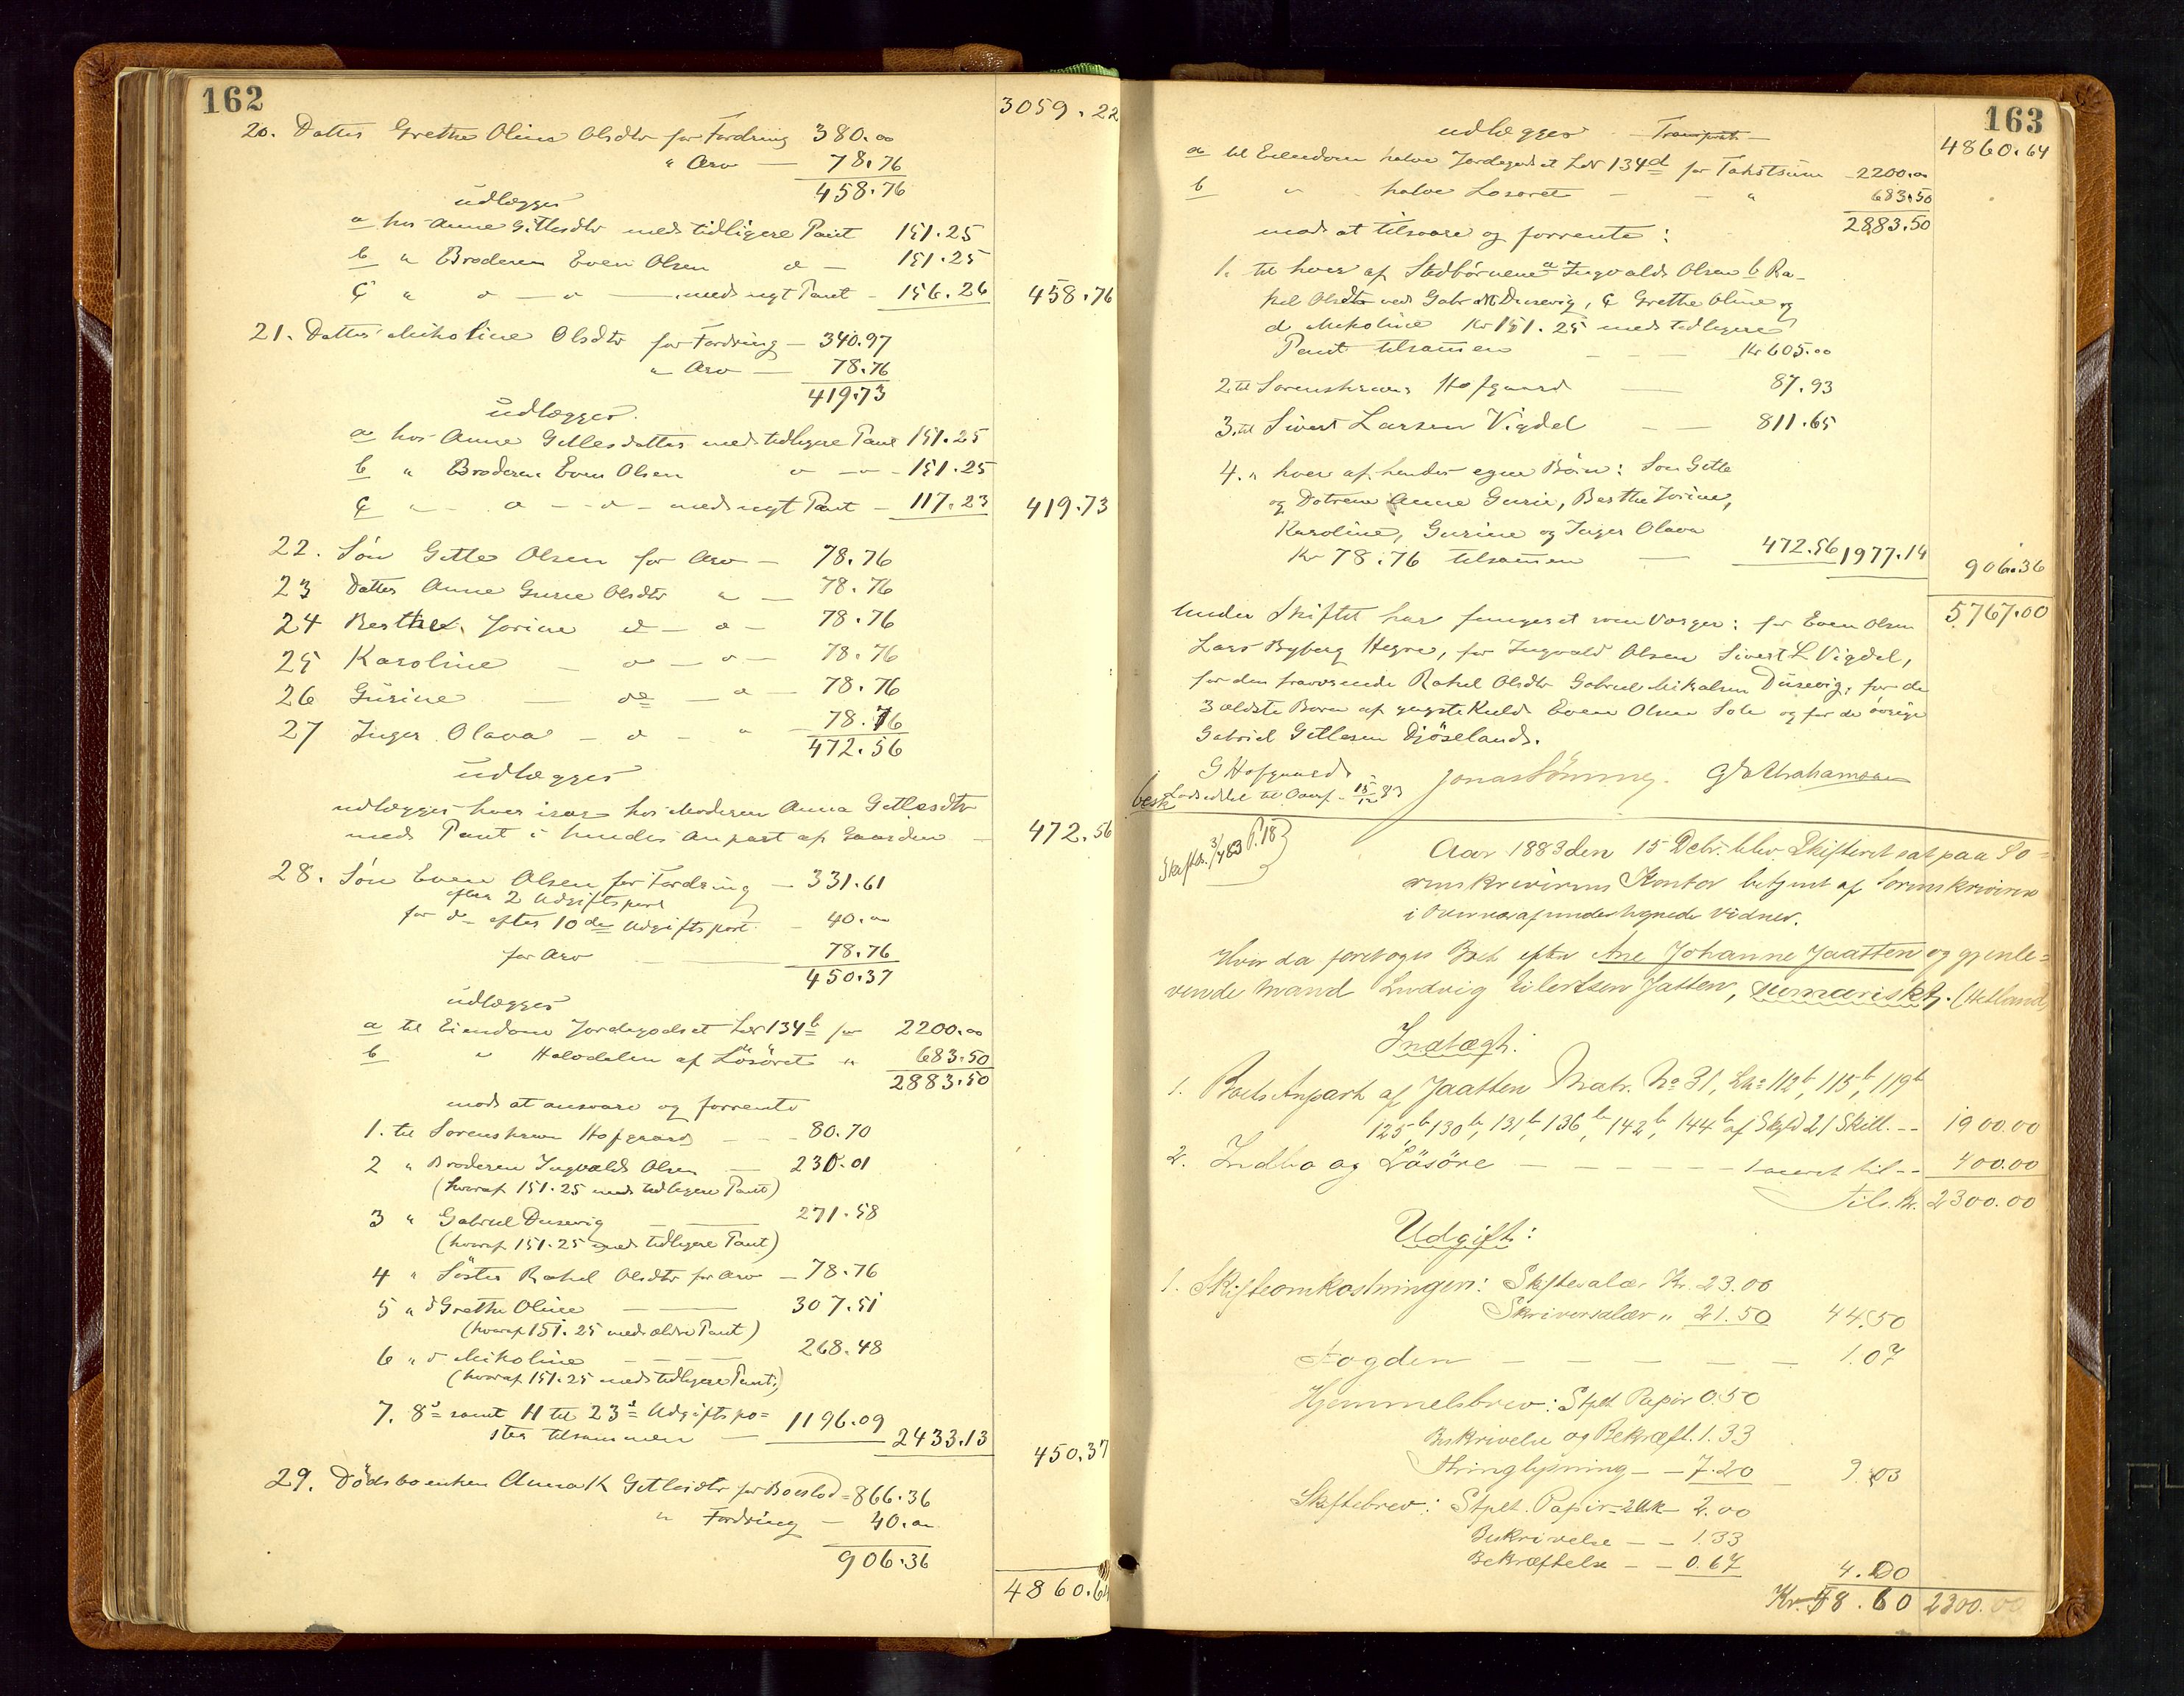 162
3059.22
20. Datter Grethe Oline Olsdtr for Fordring 380.00
" Arv — 78.76
458.76
udlægges
a hos Anne Gitlesdtr med tidligere Pant 151.25
b " Broderen Even Olsen d — 151.25
c " d — d — med nyt Pant - 156.26 458.76
21. Datter Mikoline Olsdtr for Fordring — 340.97
" Arv — 78.76
419.73
udlægges
a hos Anne Gitlesdatter med tidligere Pant 151.25
b " Broderen Even Olsen d — " - 151.25
c " - d - - d - med nyt Pant - 117.23 419.73
22. Søn Gitle Olsen for Arv — 78.76
23 Datter Anne Gurie Olsdtr " — 78.76
24 Berthe Jorine d — d — 78.76
25 Karoline — d — d — 78.76
26 Gurine — do — d — 78.76
27 Inger Olava — d - " — 78.76
472.56
udlægges
udlægges hver især hos Moderen Anna Gitlesdtr
med Pant i hendes Anpart af Gaarden — 472.56
28. Søn Even Olsen for Fordring — 331.61
efter 2 Udgiftspost
for do efter 10de Udgiftspost - 40.00
for Arv — 78.76
450.37
udlægges
a til Eiendom Jordegodset Lnr 134b for 2200.00
b " Halvdelen af Løsøret " 683.50
2883.50
mod at ansvare og forrente
1. til Sorenskriver Hofgaard — 80.70
2 " Broderen Ingvald Olsen — 230.01
(hvoraf 151.25 med tidligere Pant)
3 " Gabriel Dusevig — 271.58
(hvoraf 151.25 med tidligere Pant)
4 " Søster Rakel Olsdtr for Arv — 78.76
5 " d Grethe Oline — 307.51
(hvoraf 151.25 med ældre Pant)
6 " d Mikoline — 268.48
(hvoraf 151.25 med tidligere Pant)
7. 8de samt 11 til 23de Udgiftspo=
ster tilsammen — 1196.09 2433.13 450.37
29. Dødsboenken Anna K Gitlesdtr for Boeslod = 866.36
" Fordring — 40.00
906.36
4860.64
163
udlægges — Transport — 4860.64
a til Eiendom halve Jordegodset Lnr 134d for Takstsum — 2200.00
b " halve Løsøret — " 683.50
2883.50
mod at tilsvare og forrente:
1. til hver af Stedbørnene a Ingvald Olsen b Ra-
kel Olsdtr ved Gabr. Dusevig, c Grethe Oline og
d Mikoline Kr 151.25 med tidligere
Pant tilsamen — Kr 605.00
2 til Sorenskriver Hofgaard — 87.93
3. til Sivert Larsen Vigdel — 811.65
4. " hver af hendes egne Børn: Søn Gitle
og Døtrene Anne Gurie, Berthe Jorine,
Karoline, Gurine og Inger Olava
Kr 78.76 tilsamen — 472.56 1977.14 906.36
5767.00
Under Skiftet har fungeret som Værger: for Even Olsen
Lars Byberg Hegre, for Ingvald Olsen Sivert L Vigdel,
for den fraværende Rakel Olsdtr Gabriel Mikalsen Dusevig, for de
3 ældste Børn af yngste Kuld Even Olsen Sole og for de øvrige
Gabriel Gitlesen Djöseland.
G Hofgaard Jonas Lönning. G Abrahamsen
besk. Lodseddel til 15/12 83
Skiftes. 3/7 83 P. 18
Aar 1883 den 15 Debr. blev Skifteret sat paa So=
renskriverens Kontor betjent af Sorenskriveren
i Overvær af undertegnede Vidner.
Hvor da foretoges Boet efter Ane Johanne Jaatten og gjenle=
vende Mand Ludvig Eilertsen Jatten, sumarisk. (Hetland)
Indtægt:
1. Boets Anpart af Jaatten Matr. No 31, Lno 112b, 115b, 119b
125b, 130b, 131b, 136b, 142b, 144b af Skyld 21 Skill. - - 1900.00
2. Indbo og Løsøre — — — taxeret til - - 400.00
Tils. Kr. 2300.00
Udgift:
1. Skifteomkostninger: Skiftesalær Kr. 23.00
Skriversalær " 21.50 44.50
Fogden — — — — — 1.07
Hjemmelsbrev: Stplt Papir 0.50
Beskrivelse og Bekræft. 1.33
Thinglysning — - 7.20 — 9.03
Skiftebrev: Stplt. Papir - 2.00
Beskrivelse — - 1.33
Bekræftelse — - 0.67 4.00
Kr. 58.60 2300.00